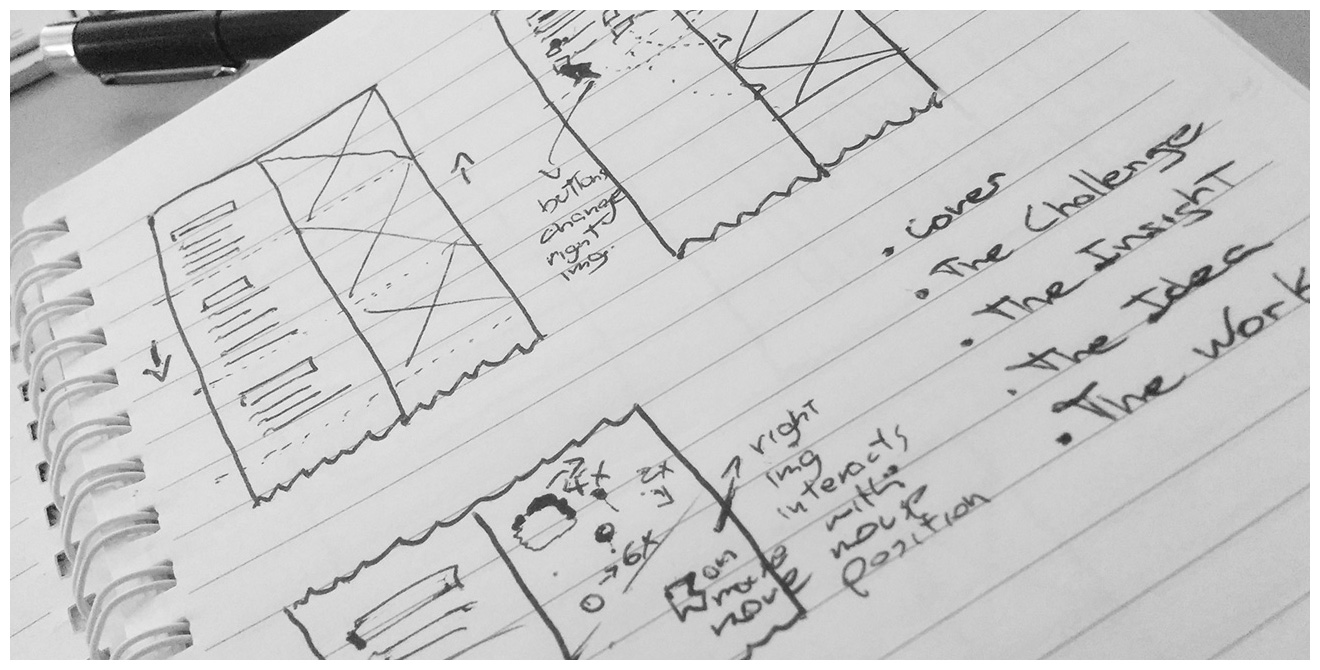 buttons
change
right
img.
• Cover
• The Challenge
• The Insight
• The Idea
• The Work
right
img
interacts
with
mouse
position
4x
2x
6x
on
mouse
move